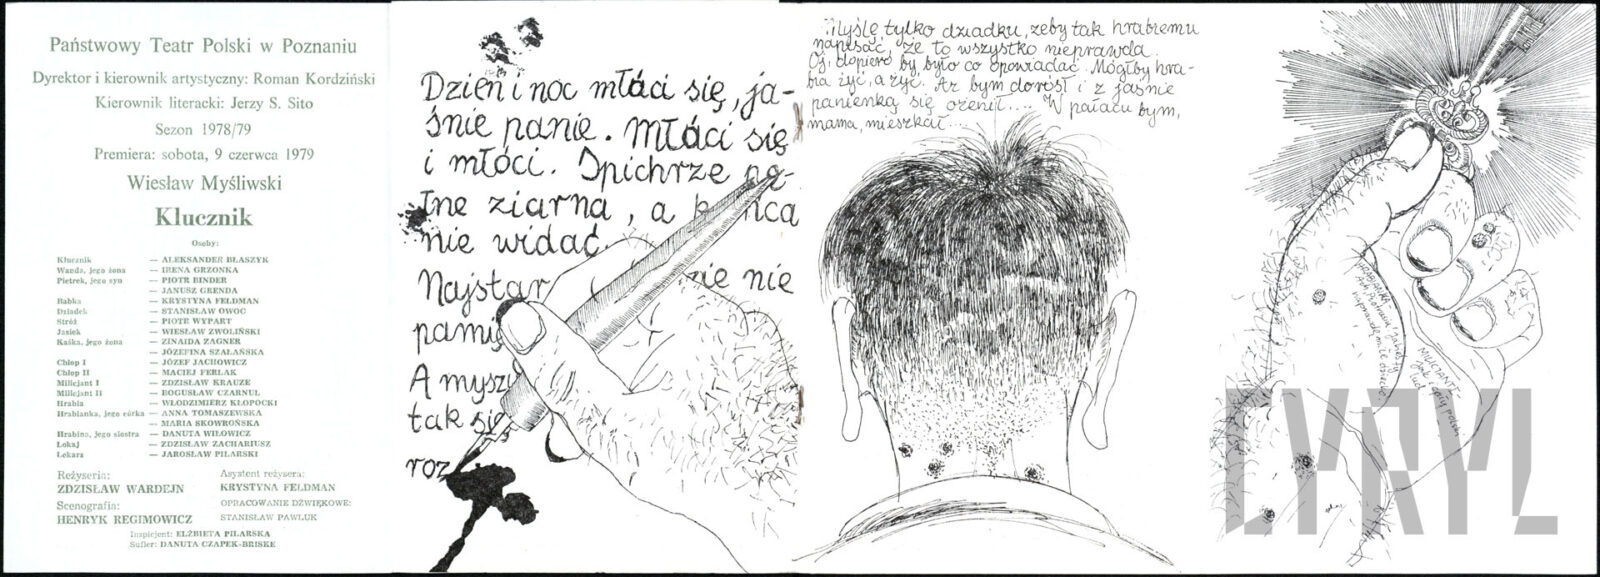 Państwowy Teatr Polski w Poznaniu
Dyrektor i kierownik artystyczny: Roman Kordziński
Kierownik literacki: Jerzy S. Sito
Sezon 1978/79
Premiera: sobota, 9 czerwca 1979
Wiesław Myśliwski
Klucznik
Osoby:
Klucznik — ALEKSANDER BŁASZYK
Wanda, jego żona — IRENA GRZONKA
Pietrek, jego syn — PIOTR BINDER
— JANUSZ GRENDA
Babka — KRYSTYNA FELDMAN
Dziadek — STANISŁAW OWOC
Stróż — PIOTR WYPART
Jasiek — WIESŁAW ZWOLIŃSKI
Kaśka, jego żona — ZINAIDA ZAGNER
— JÓZEFINA SZAŁAŃSKA
Chłop I — JÓZEF JACHOWICZ
Chłop II — MACIEJ FERLAK
Milicjant I — ZDZISŁAW KRAUZE
Milicjant II — BOGUSŁAW CZARNUL
Hrabia — WŁODZIMIERZ KŁOPOCKI
Hrabianka, jego córka — ANNA TOMASZEWSKA
— MARIA SKOWROŃSKA
Hrabina, jego siostra — DANUTA WIŁOWICZ
Lokaj — ZDZISŁAW ZACHARIUSZ
Lekarz — JAROSŁAW PILARSKI
Reżyseria:
ZDZISŁAW WARDEJN
Scenografia:
HENRYK REGIMOWICZ
Asystent reżysera:
KRYSTYNA FELDMAN
OPRACOWANIE DŹWIĘKOWE:
STANISŁAW PAWLUK
Inspicjent: ELŻBIETA PILARSKA
Sufler: DANUTA CZAPEK-BRISKE
Dzień i noc młáci się, ja-
śnie panie. Młáci się
i młóci. Spichrze pe-
łne ziarna, a k nca
nie widać.
Najstar zie nie
pamię
A myszy
tak się
roz
Myślę tylko dziadku, żeby tak hrabiemu
napisać, że to wszystko nieprawda.
Oj, dopiero by było co opowiadać. Mógłby hra-
bia żyć, a żyć. Aż bym dorósł i z jaśnie
panienką się ożenił.... W pałacu bym,
mama, mieszkał...
HRABIANKA
MILICJANT
CYRYL